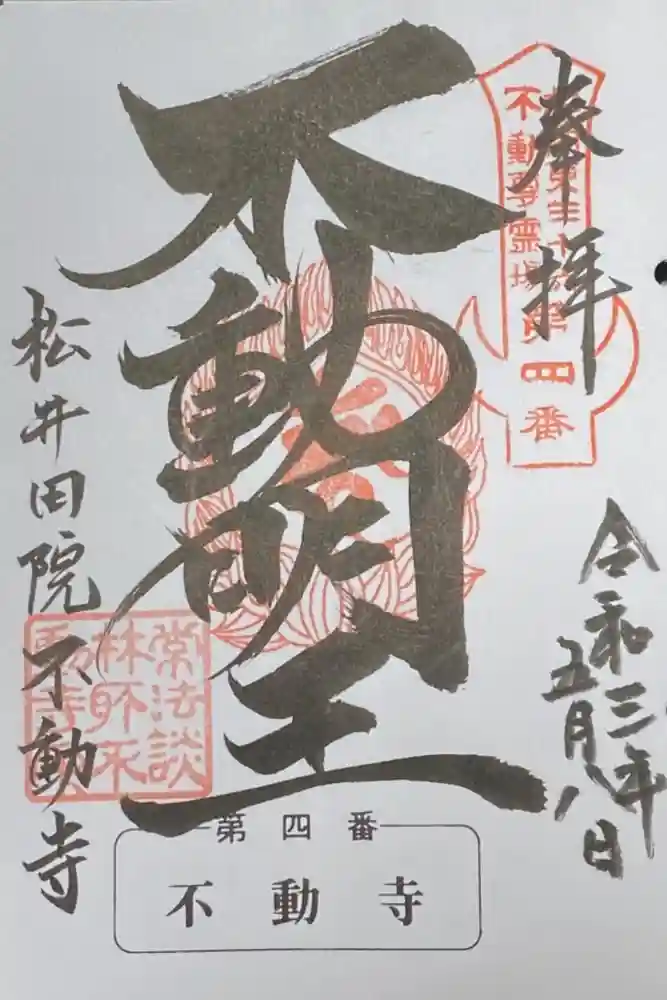 奉拝
令和三年
五月八日
不動明王
松井田院不動寺
不動尊霊場
四番
常法談
林所不
動寺
第四番
不動寺